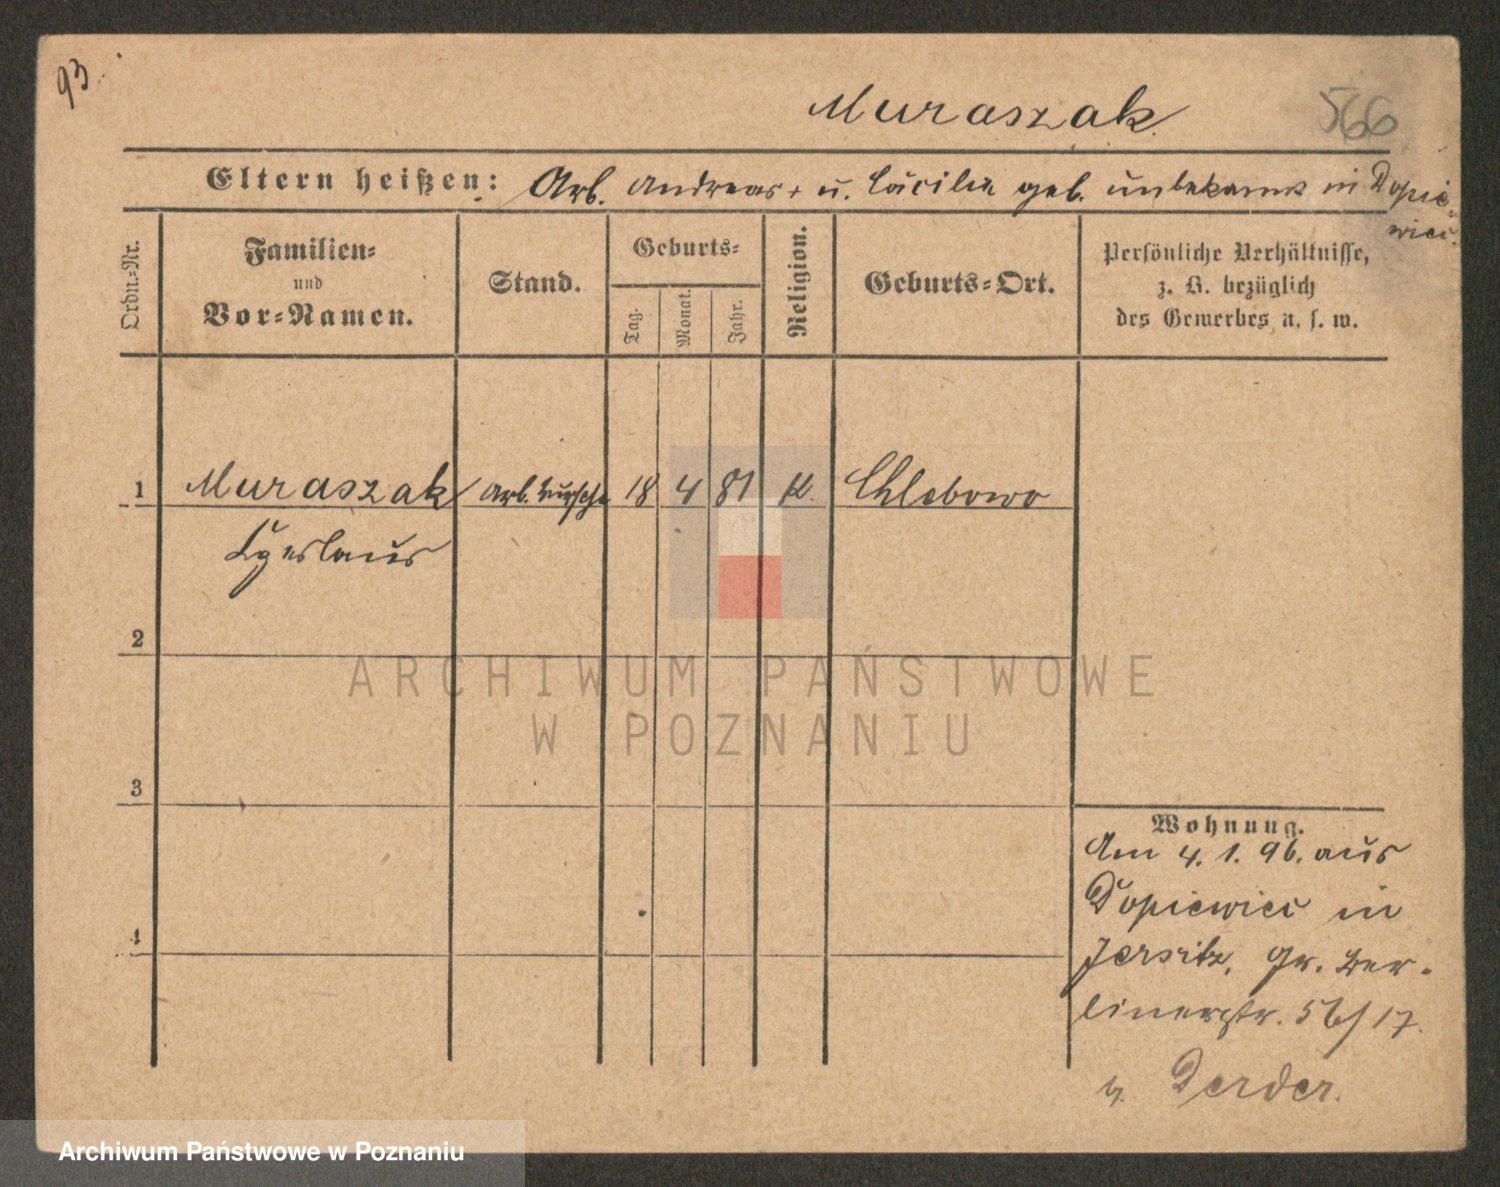 93.
Muraszak.
566
Eltern heißen: Arb. Andreas + u. Cäcilia geb. unbekannt in Dopie-
wiec.
Ordn.-Nr.
Familien-
und
Vor-Namen.
Stand.
Geburts-
Tag.
Monat.
Jahr.
Religion.
Geburts-Ort.
Persönliche Verhältnisse,
z. B. bezüglich
des Gewerbes u. s. w.
1 Muraszak Arb. bursche 18 4 81 k. Chlebowo
Czeslaus
2
3
4
ARCHIWUM PAŃSTWOWE
W POZNANIU
Wohnung.
Am 4. 1. 96. aus
Dopiewiec in
Jersitz, Gr. Ber-
linerstr. 56/17.
b. Derder.
Archiwum Państwowe w Poznaniu